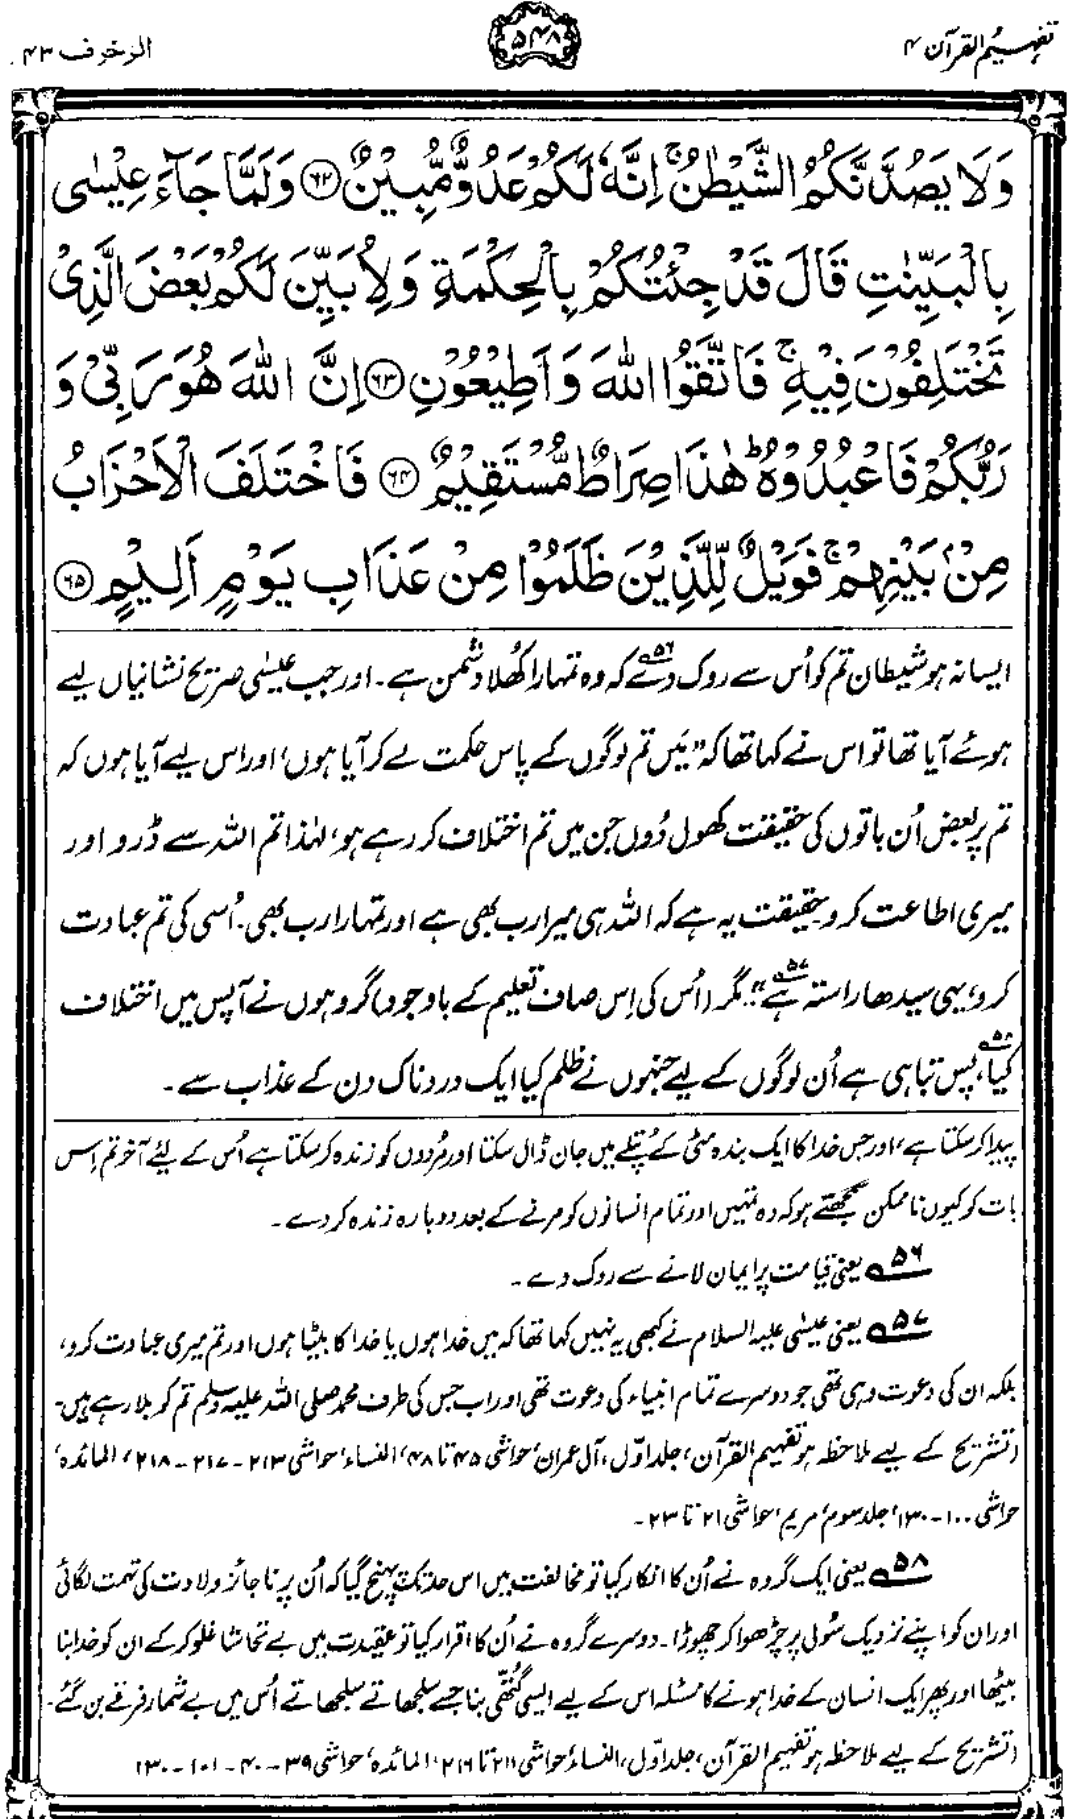 تفہیم القرآن ۴
۵۴۸
الزخرف ۴۳
وَلَا يَصُدَّنَّكُمُ الشَّيْطٰنُ ۚ اِنَّهٗ لَكُمْ عَدُوٌّ مُّبِيْنٌ ﴿۶۲﴾ وَلَمَّا جَآءَ عِيْسٰى
بِالْبَيِّنٰتِ قَالَ قَدْ جِئْتُكُمْ بِالْحِكْمَةِ وَلِاُبَيِّنَ لَكُمْ بَعْضَ الَّذِىْ
تَخْتَلِفُوْنَ فِيْهِ ۚ فَاتَّقُوا اللّٰهَ وَاَطِيْعُوْنِ ﴿۶۳﴾ اِنَّ اللّٰهَ هُوَ رَبِّىْ وَ
رَبُّكُمْ فَاعْبُدُوْهُ ؕ هٰذَا صِرَاطٌ مُّسْتَقِيْمٌ ﴿۶۴﴾ فَاخْتَلَفَ الْاَحْزَابُ
مِنْۢ بَيْنِهِمْ ۚ فَوَيْلٌ لِّلَّذِيْنَ ظَلَمُوْا مِنْ عَذَابِ يَوْمٍ اَلِيْمٍ ﴿۶۵﴾
ایسا نہ ہو شیطان تم کو اُس سے روک دے۵۶ کہ وہ تمہارا کھُلا دشمن ہے۔ اور جب عیسٰی صریح نشانیاں لیے
ہوئے آیا تھا تو اس نے کہا تھا کہ ”میں تم لوگوں کے پاس حکمت لے کر آیا ہوں، اور اس لیے آیا ہوں کہ
تم پر بعض اُن باتوں کی حقیقت کھول دُوں جن میں تم اختلاف کر رہے ہو، لہٰذا تم اللہ سے ڈرو اور
میری اطاعت کرو۔ حقیقت یہ ہے کہ اللہ ہی میرا رب بھی ہے اور تمہارا رب بھی۔ اُسی کی تم عبادت
کرو، یہی سیدھا راستہ ہے۵۷“۔ مگر (اُس کی اِس صاف تعلیم کے باوجود) گروہوں نے آپس میں اختلاف
کیا۵۸، پس تباہی ہے اُن لوگوں کے لیے جنہوں نے ظلم کیا ایک دردناک دن کے عذاب سے۔
پیدا کر سکتا ہے، اور جس خدا کا ایک بندہ مٹی کے پُتلے میں جان ڈال سکتا اور مُردوں کو زندہ کر سکتا ہے اُس کے لئے آخر تم اِس
بات کو کیوں ناممکن سمجھتے ہو کہ وہ تمہیں اور تمام انسانوں کو مرنے کے بعد دوبارہ زندہ کر دے۔
۵۶ یعنی قیامت پر ایمان لانے سے روک دے۔
۵۷ یعنی عیسٰی علیہ السلام نے کبھی یہ نہیں کہا تھا کہ میں خدا ہوں یا خدا کا بیٹا ہوں اور تم میری عبادت کرو،
بلکہ ان کی دعوت وہی تھی جو دوسرے تمام انبیاء کی دعوت تھی اور اب جس کی طرف محمد صلی اللہ علیہ وسلم تم کو بلا رہے ہیں۔
(تشریح کے لیے ملاحظہ ہو تفہیم القرآن، جلد اوّل، آل عمران، حواشی ۴۵ تا ۴۸، النساء، حواشی ۲۱۳ - ۲۱۷ - ۲۱۸، المائدہ،
حواشی ۱۰۰ - ۱۳۰، جلد سوم، مریم، حواشی ۲۱ تا ۲۳۔
۵۸ یعنی ایک گروہ نے اُن کا انکار کیا تو مخالفت میں اس حد تک پہنچ گیا کہ اُن پر ناجائز ولادت کی تہمت لگائی
اور ان کو اپنے نزدیک سُولی پر چڑھوا کر چھوڑا۔ دوسرے گروہ نے اُن کا اقرار کیا تو عقیدت میں بے تحاشا غلو کر کے ان کو خدا بنا
بیٹھا اور پھر ایک انسان کے خدا ہونے کا مسئلہ اس کے لیے ایسی گُتھی بنا جسے سلجھاتے سلجھاتے اُس میں بے شمار فرقے بن گئے۔
(تشریح کے لیے ملاحظہ ہو تفہیم القرآن، جلد اوّل، النساء، حواشی ۲۱۱ تا ۲۱۶، المائدہ، حواشی ۳۹ - ۴۰ - ۱۰۱ - ۱۳۰